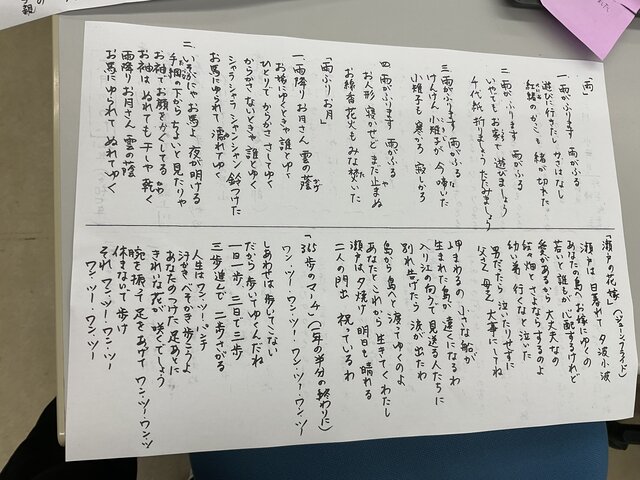 「雨」
一 雨がふります 雨がふる
遊びに行きたし かさはなし
紅緒のかっこも 緒が切れた
二 雨がふります 雨がふる
いやでも お家で 遊びましょう
千代紙 折りましょう たたみましょう
三 雨がふります 雨がふる
けんけん 小雉子が 今啼いた
小雉子も 寒かろ 寂しかろ
四 雨がふります 雨がふる
お人形 寝かせど まだ止まぬ
お線香花火も みな焚いた
「雨ふりお月」
一 雨降りお月さん 雲の蔭
お嫁にゆくときゃ 誰とゆく
ひとりで からかさ さしてゆく
からかさ ないときゃ 誰とゆく
シャラシャラ シャンシャン 鈴つけた
お馬にゆられて 濡れてゆく
二 いそがにゃお馬よ 夜が明ける
手綱の下から ちょいと見たりゃ
お袖で お顔を かくしてる
お袖は ぬれても 干しゃ乾く
雨降りお月さん 雲の蔭
お馬にゆられて ぬれてゆく
「瀬戸の花嫁」
瀬戸は 日暮れて 夕波小波
あなたの島へ お嫁にゆくの
若いと誰もが 心配するけれど
愛があるから 大丈夫なの
段々畑と さよならするのよ
幼い弟 行くなと 泣いた
男だったら 泣いたりせずに
父さん 母さん 大事にしてね
岬まわるの 小さな船が
生まれた島が 遠くになるわ
入り江の向うで 見送る人たちに
別れ告げたら 涙が出たわ
島から島へと 渡ってゆくのよ
あなたとこれから 生きてくわたし
瀬戸は夕焼け 明日も晴れる
二人の門出 祝っているわ
「365歩のマーチ」(一年の半分の終わりに)
ワン・ツー・ワン・ツー・ワン・ツー・ワン・ツー
しあわせは 歩いてこない
だから 歩いて ゆくんだね
一日一歩 三日で三歩
三歩進んで 二歩さがる
人生は ワン・ツー・パンチ
汗かき べそかき 歩こうよ
あなたのつけた 足あとに
きれいな花が 咲くでしょう
腕を振って 足をあげて ワン・ツー・ワン・ツー
休まないで 歩け
それ ワン・ツー・ワン・ツー
ワン・ツー・ワン・ツー